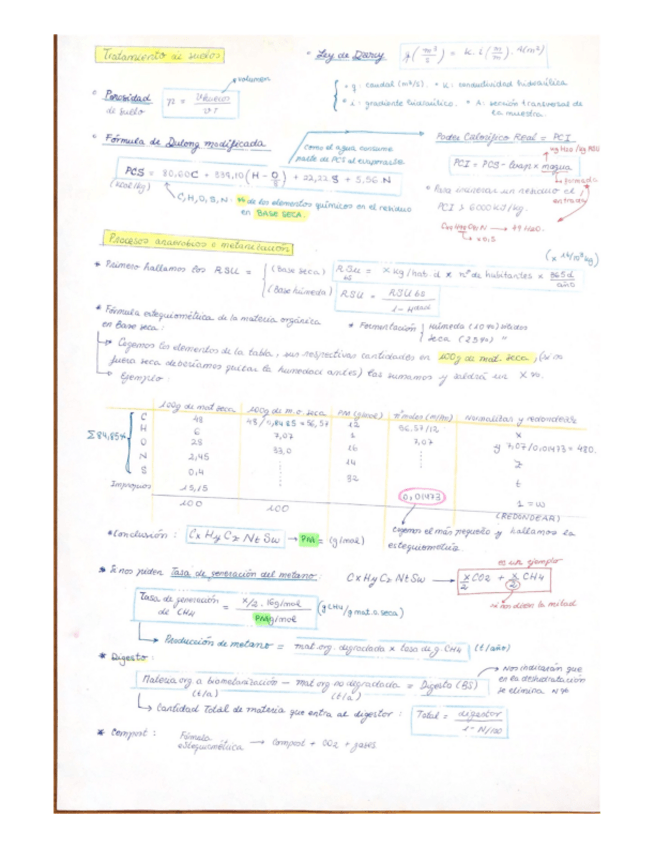 Tratamiento de suelos
• Ley de Darcy
q (m³/s) = K · i (m/m) · A(m²)
volumen
• Porosidad de suelo
n = Vhuecos / VT
• q: caudal (m³/s). • K: conductividad hidraúlica
• i: gradiente hidraúlico. • A: sección transversal de la muestra.
• Fórmula de Dulong modificada
como el agua consume parte de PCI al evaporarse
Poder Calorífico Real = PCI
kg H2O/kg RSU
PCI = PCS - Lvap x magua
formada
entrada
(kcal/kg)
C, H, O, S, N: % de los elementos químicos en el residuo en BASE SECA.
• Para incinerar un residuo el
PCI > 6000 KJ/kg.
Procesos anaerobios o metanización
* Primero hallamos los RSU =
(Base seca)
RSU BS = x kg/hab.d x nº de habitantes x 365d/año
(Base húmeda)
RSU =
* Fórmula estequiométrica de la materia orgánica en Base seca:
* Formulación
Húmeda (10%) sólidos
Seca (25%) "
Cogemos los elementos de la tabla, sus respectivas cantidades en 100g de mat. seca, (si no fuera seca deberíamos quitar la humedad antes) las sumamos y saldrá un X%.
Ejemplo:
100g de mat seca 100g de m.o. seca PM (g/mol) nº moles (m/PM) Normalizar y redondear
Σ84,85%
C 48 48/0,8485 = 56,57 12 56,57/12 x
H 6 7,07 1 7,07 y 7,07/0,01473 = 480.
O 28 33,0 16 z
N 2,45 14 t
S 0,4 32 0,01473 1 = w
Impropios 15,15
100 100
(REDONDEAR)
Cogemos el más pequeño y hallamos la estequiometría
* Conclusión: Cx Hy Oz Nt Sw → PM = (g/mol)
es un ejemplo
* Si nos piden Tasa de generación del metano: Cx Hy Oz Nt Sw → x/2 CO2 + x/2 CH4
si nos dicen la mitad
Tasa de generación de CH4 = x/2 · 16g/mol / PM g/mol (g CH4/g mat.o.seca)
Producción de metano = mat.org. degradada x tasa de g. CH4 (t/año)
* Digesto:
Materia org a biometanización - mat org no degradada = Digesto (BS)
(t/a) (t/a)
Nos indicarán que en la deshidratación se elimina N%
Cantidad Total de materia que entra al digestor: Total = digestor / 1-N/100
* Compost: Fórmula estequiométrica → Compost + CO2 + gases